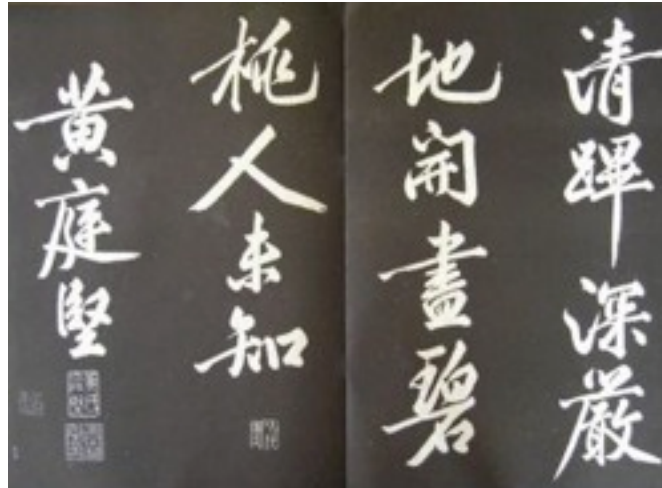 清蹕深嚴
地開盡碧
桃人未知
黃庭堅